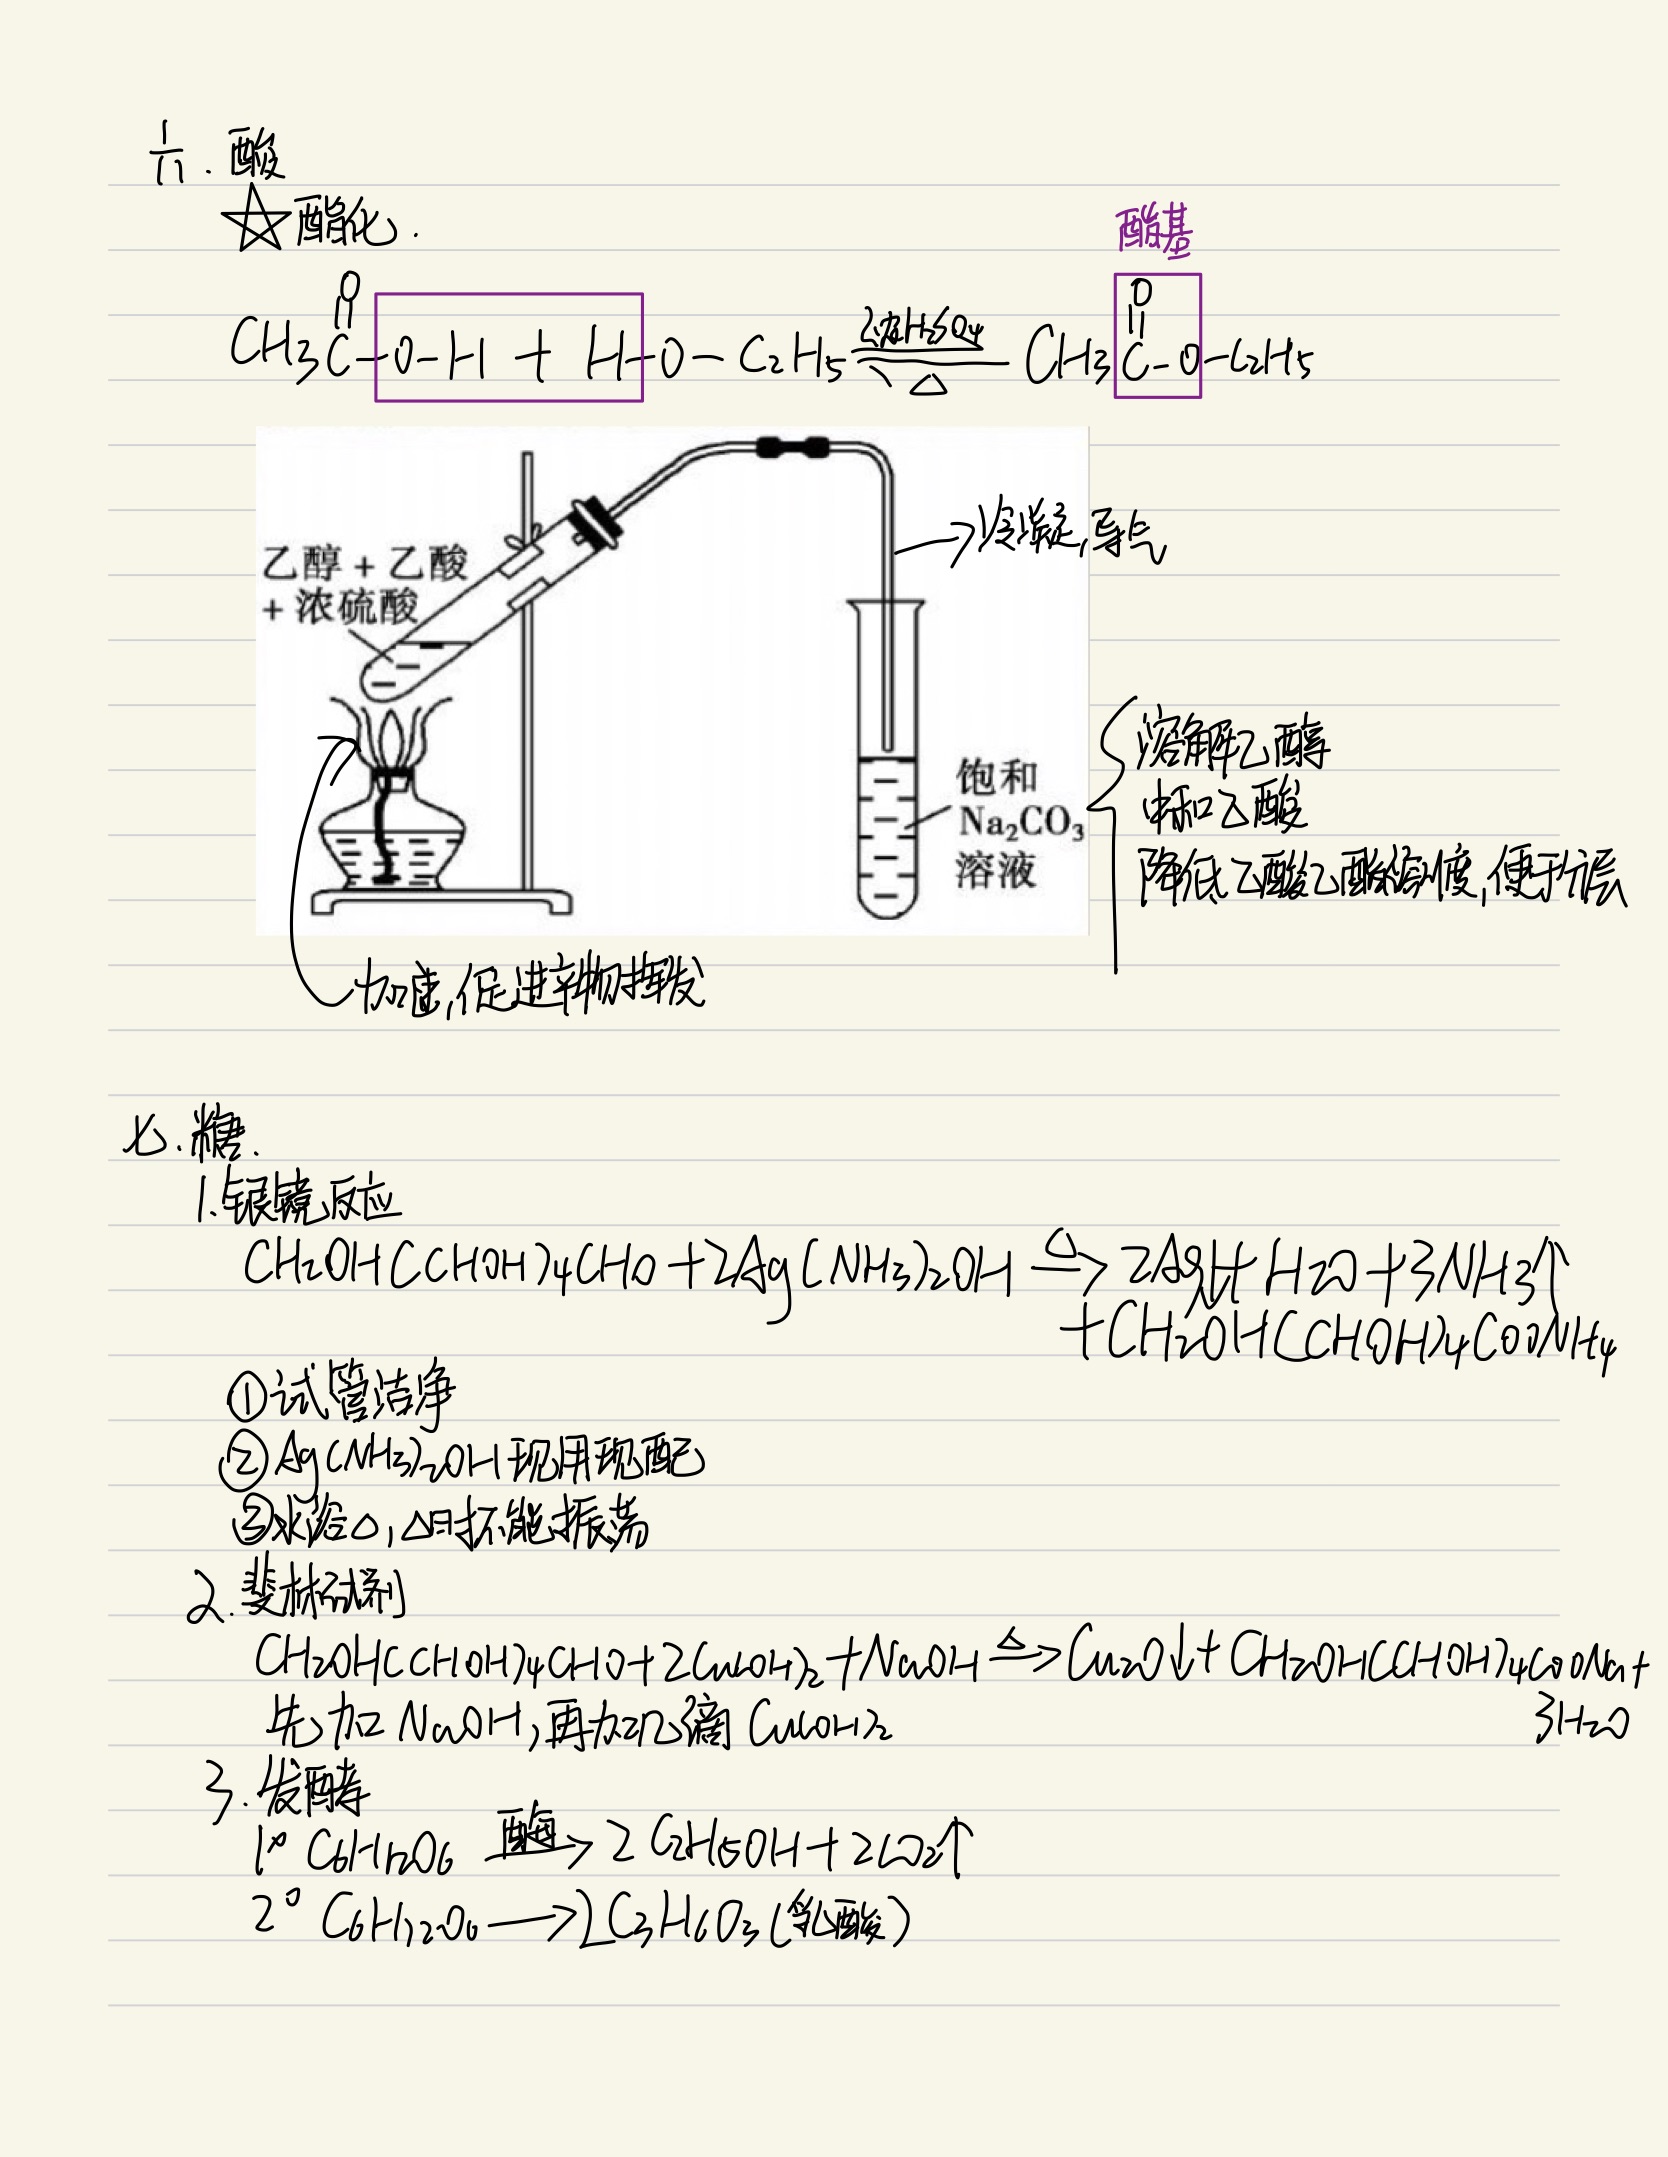 六. 酸
☆酯化.
酯基
O O
CH3C-O-H + H-O-C2H5 浓H2SO4 ⇌ △ CH3C-O-C2H5
→冷凝,导气
乙醇 + 乙酸
+ 浓硫酸
饱和
Na2CO3
溶液
溶解乙醇
中和乙酸
降低乙酸乙酯溶解度,便于分层
加速,促进产物挥发
七. 糖.
1.银镜反应
CH2OH(CHOH)4CHO+2Ag(NH3)2OH △→ 2Ag↓+H2O+3NH3↑
+CH2OH(CHOH)4COONH4
①试管洁净
②Ag(NH3)2OH现用现配
③水浴△,△时不能振荡
2.斐林试剂
CH2OH(CHOH)4CHO+2Cu(OH)2+NaOH △→Cu2O↓+CH2OH(CHOH)4COONa+
3H2O
先加NaOH,再加几滴Cu(OH)2
3.发酵
1° C6H12O6 酶→ 2C2H5OH+2CO2↑
2° C6H12O6 →2C3H6O3(乳酸)